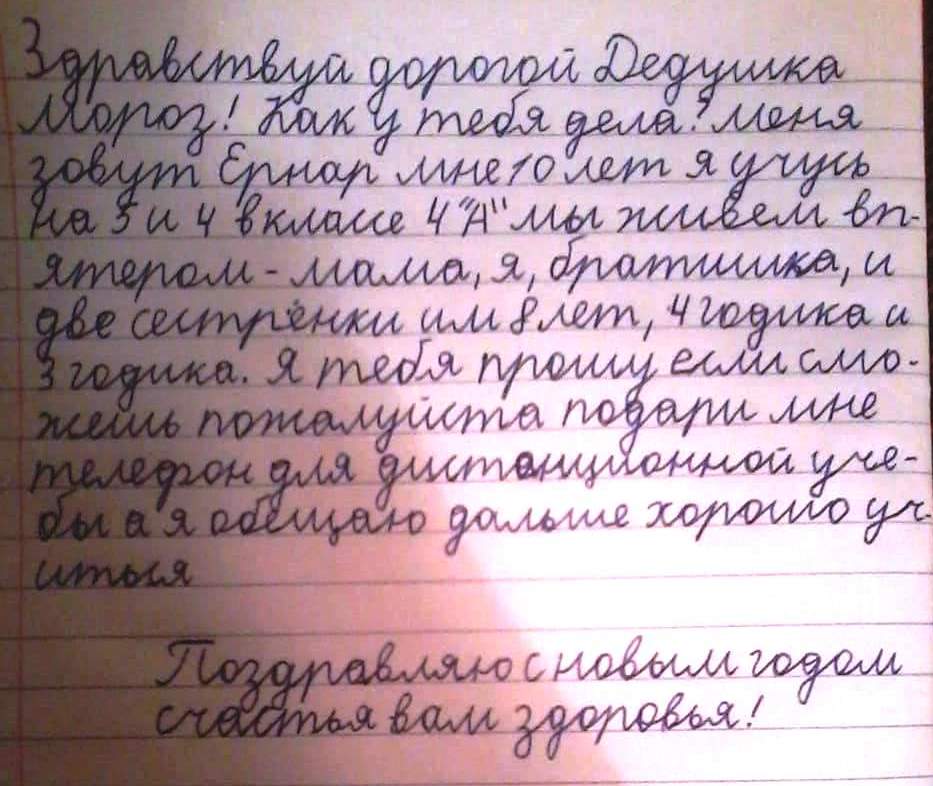 Здравствуй дорогой Дедушка
Мороз! Как у тебя дела? меня
зовут Ернар мне 10 лет я учусь
на 5 и 4 в классе 4 "А" мы живем вп-
ятером - мама, я, братишка, и
две сестрёнки им 8 лет, 4 годика и
3 годика. Я тебя прошу если смо-
жешь пожалуйста подари мне
телефон для дистанционной уче-
бы а я обещаю дальше хорошо уч-
иться
Поздравляю с новым годом
счастья вам здоровья!